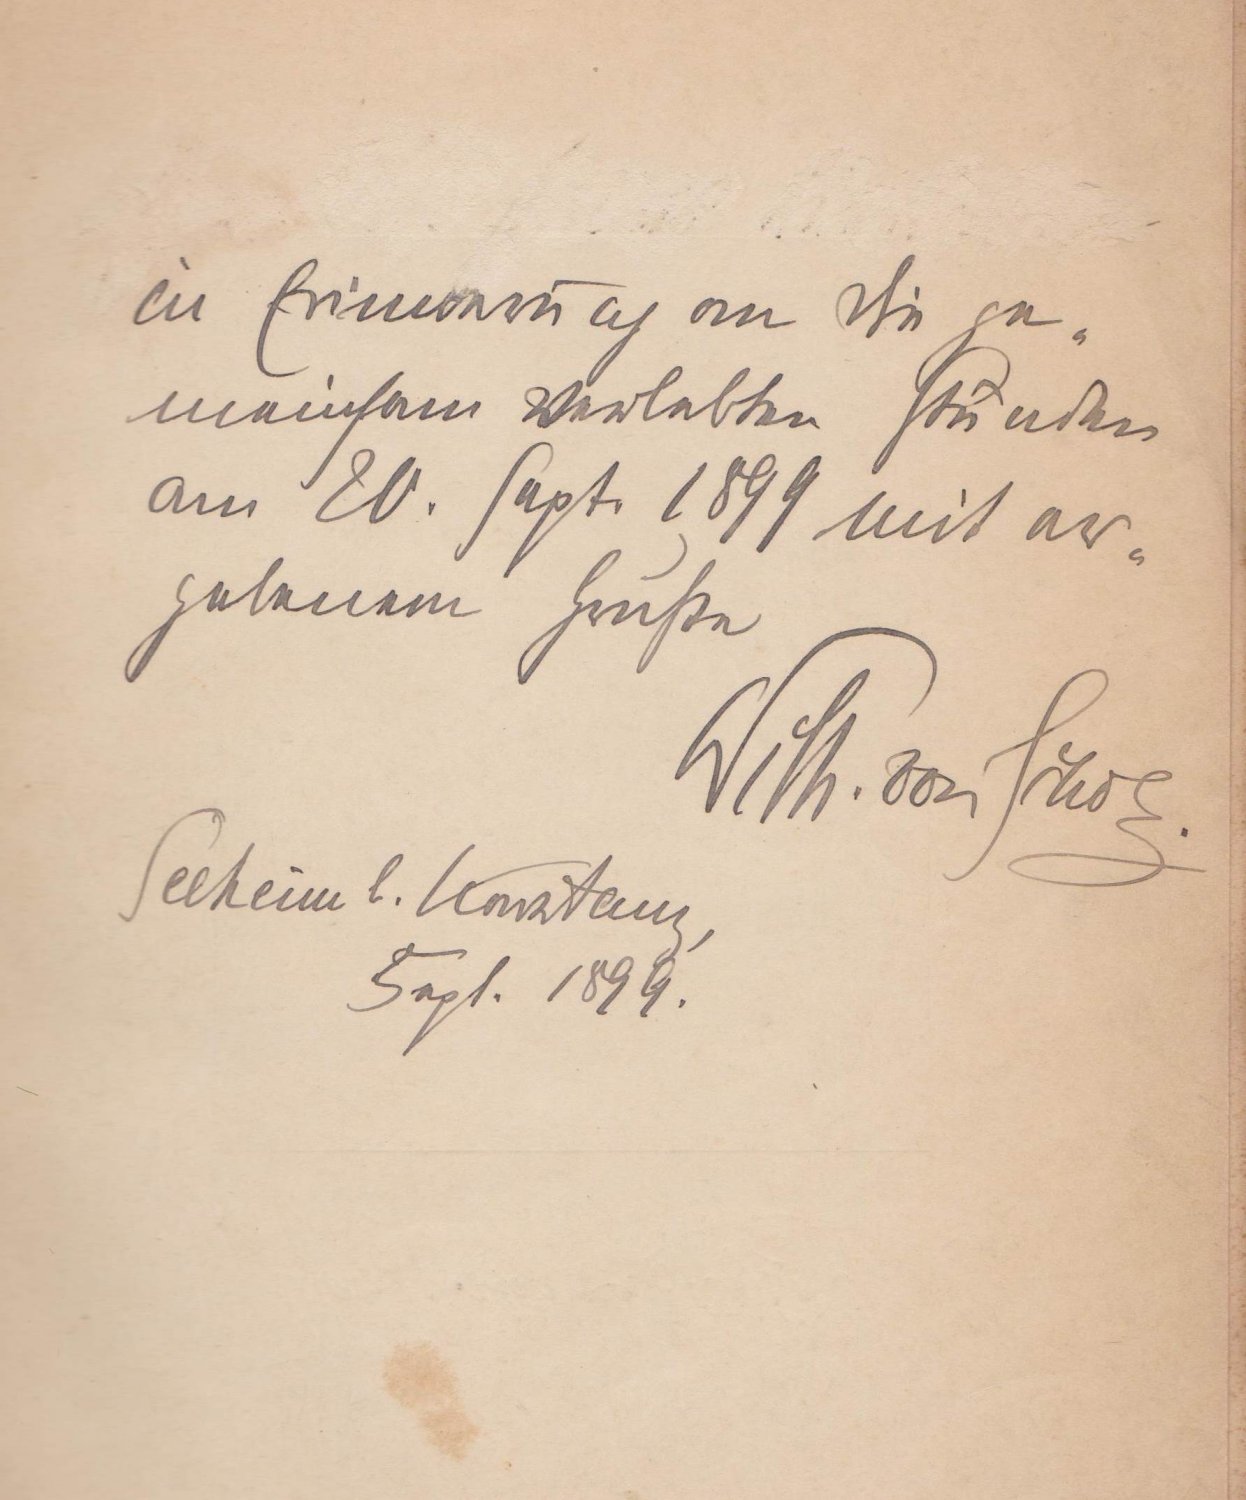 in Erinnerung an die ge-
meinsam verlebten Stunden
am 20. Sept. 1899 mit er-
gebenem Gruße
Wilh. von Scholz.
Seeheim b. Konstanz,
Sept. 1899.